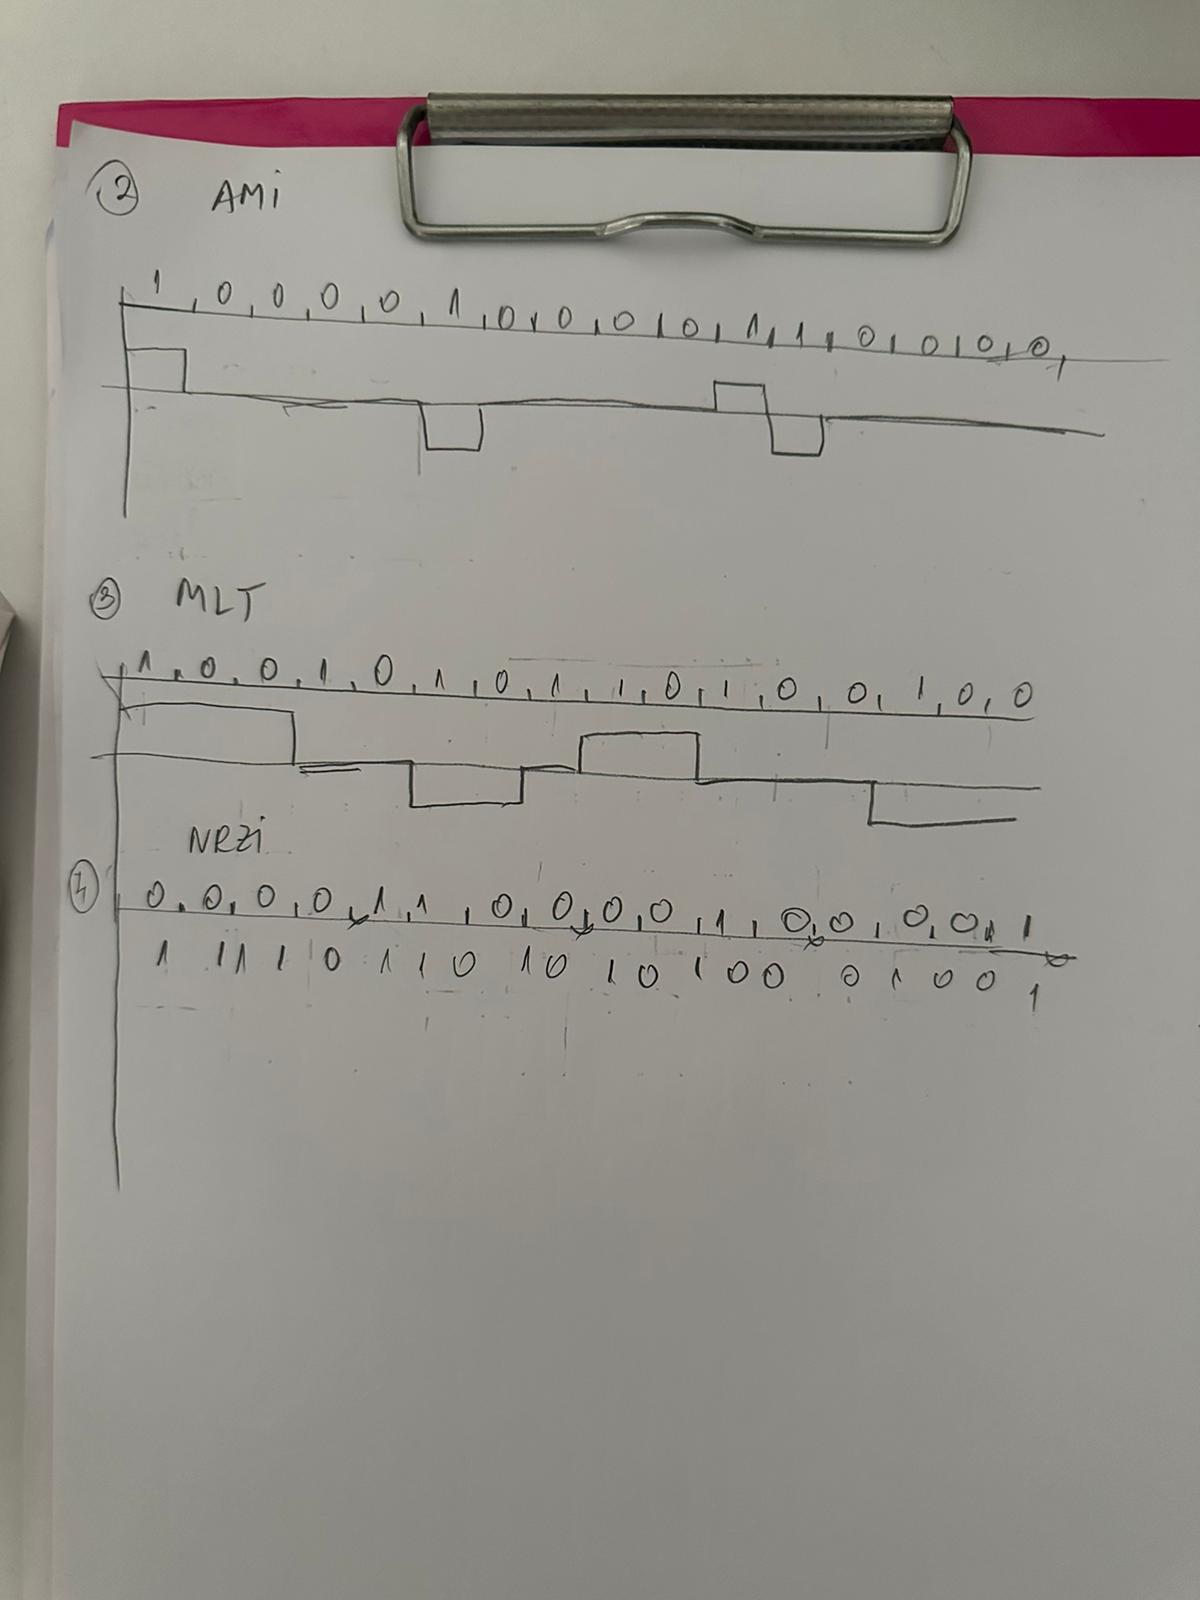 2 AMi
1 0 0 0 0 1 0 0 0 0 1 1 0 0 0 0
3 MLT
1 0 0 1 0 1 0 1 1 0 1 0 0 1 0 0
NRZi
0 0 0 0 1 1 0 0 0 0 1 0 0 0 0 1
1 1 1 1 0 1 1 0 1 0 1 0 1 0 0 0 1 0 0 1